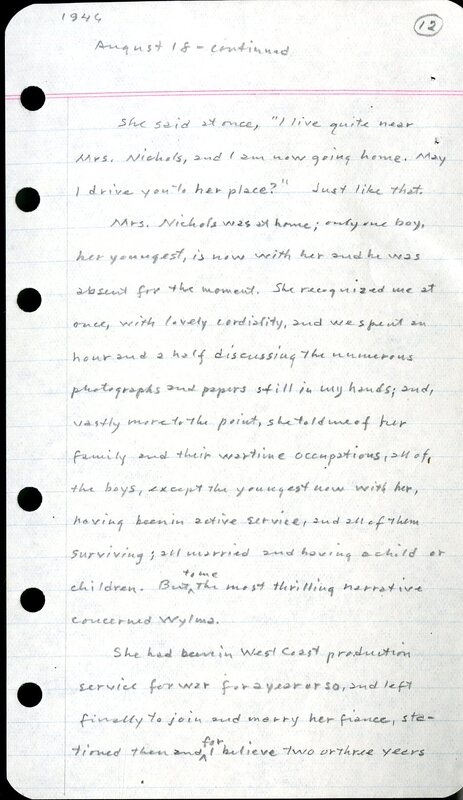 1946
12
August 18 - continued
She said at once, "I live quite near
Mrs. Nichols, and I am now going home. May
I drive you to her place?" Just like that.
Mrs. Nichols was at home; only one boy,
her youngest, is now with her and he was
absent for the moment. She recognized me at
once, with lovely cordiality, and we spent an
hour and a half discussing the numerous
photographs and papers still in my hands; and,
vastly more to the point, she told me of her
family and their wartime occupations, all of,
the boys, except the youngest now with her,
having been in active service, and all of them
surviving; all married and having a child or
children. But to me the most thrilling narrative
concerned Wylma.
She had been in West Coast production
service for war for a year or so, and left
finally to join and marry her fiance, sta-
tioned then and for I believe two or three years